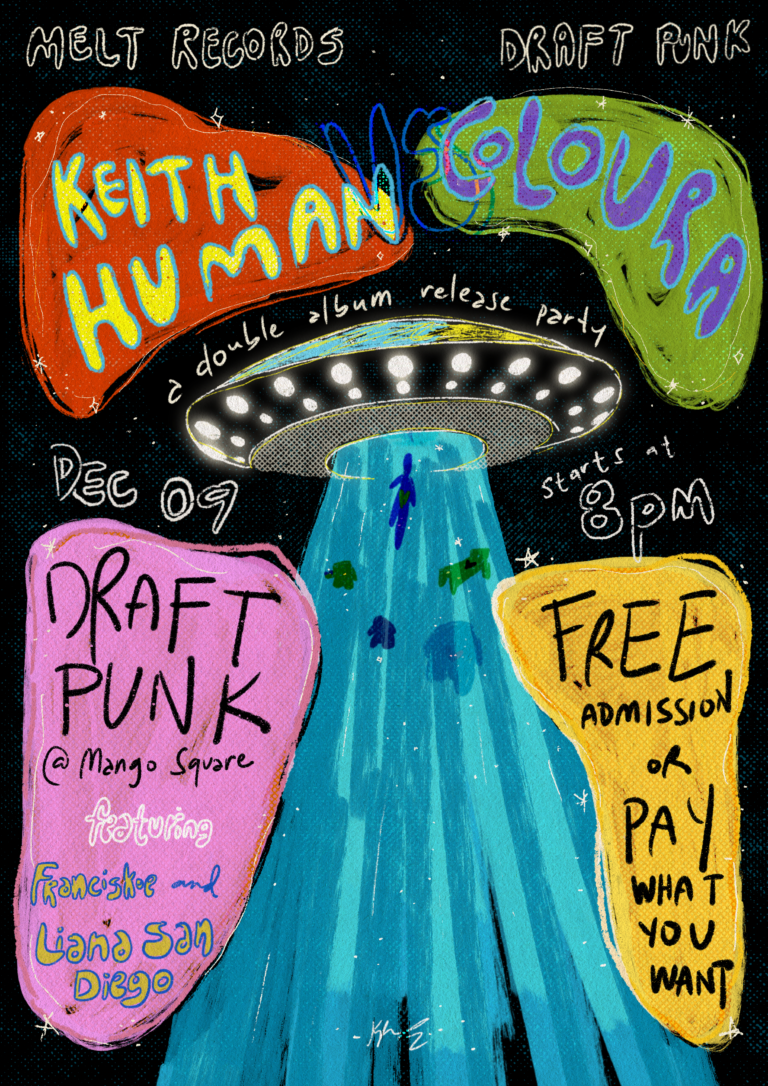 MELT RECORDS
DRAFT PUNK
KEITH
HUMAN
VS
COLOURA
a double album release party
DEC 09
starts at
8pm
DRAFT
PUNK
@ Mango Square
featuring
Franciskoe and
Liana San
Diego
FREE
ADMISSION
OR
PAY
WHAT
YOU
WANT